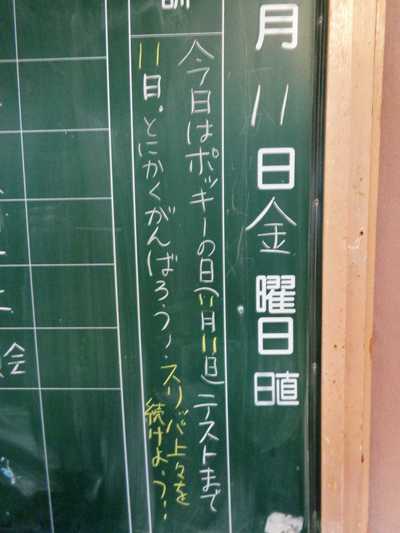 月11日金曜日日直
訓
今日はポッキーの日(11月11日)テストまで
11日。とにかくがんばろう!!スリッパ上々を
続けよう!!
会